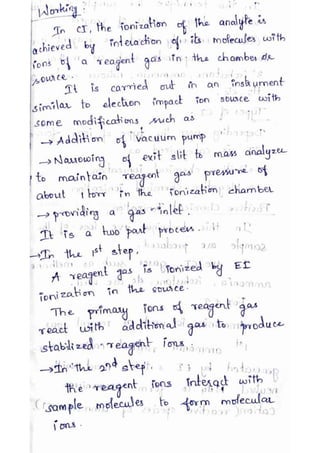 Working
In CI, the ionization of the analyte is
achieved by interaction of its molecules with
ions of a reagent gas in the chamber or
source.
It is carried out in an instrument
similar to electron impact ion source with
some modifications such as
→ Addition of vacuum pump
→ Narrowing of exit slit to mass analyzer
to maintain reagent gas pressure of
about 1 torr in the ionication chamber
→ providing a gas inlet.
It is a two part process.
→ In the 1st step,
A reagent gas is ionized by EI
ionization in the source.
The primary ions of reagent gas
react with additional gas to produce
stabilized reagent ions.
→ In the 2nd step
the reagent ions interact with
sample molecules to form molecular
ions.